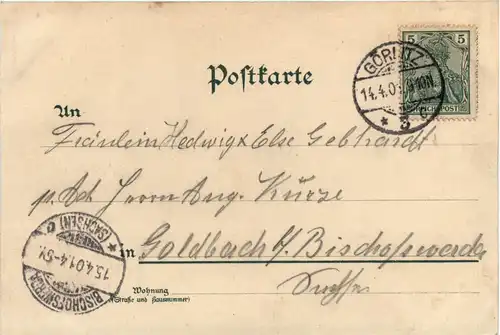 5 5
REICHSPOST
GÖRLITZ
14.4.01. 9-10N.
* 3 c
Postkarte
An
Fräulein Hedwig & Else Gebhardt
p. Ad. Herrn Aug. Kurze
in Goldbach b/ Bischofswerda
Sachsen
BISCHOFSWERDA
15.4.01.4-5V.
* (SACHSEN) c
Wohnung
(Straße und Hausnummer)